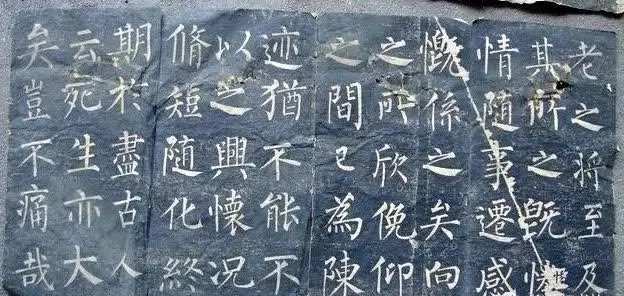 老之将至及
其所之既惓
情隨事遷感
慨係之矣向
之所欣俛仰
之間已為陳
迹猶不能不
以之興懷况
脩短隨化終
期於盡古人
云死生亦大
矣豈不痛哉